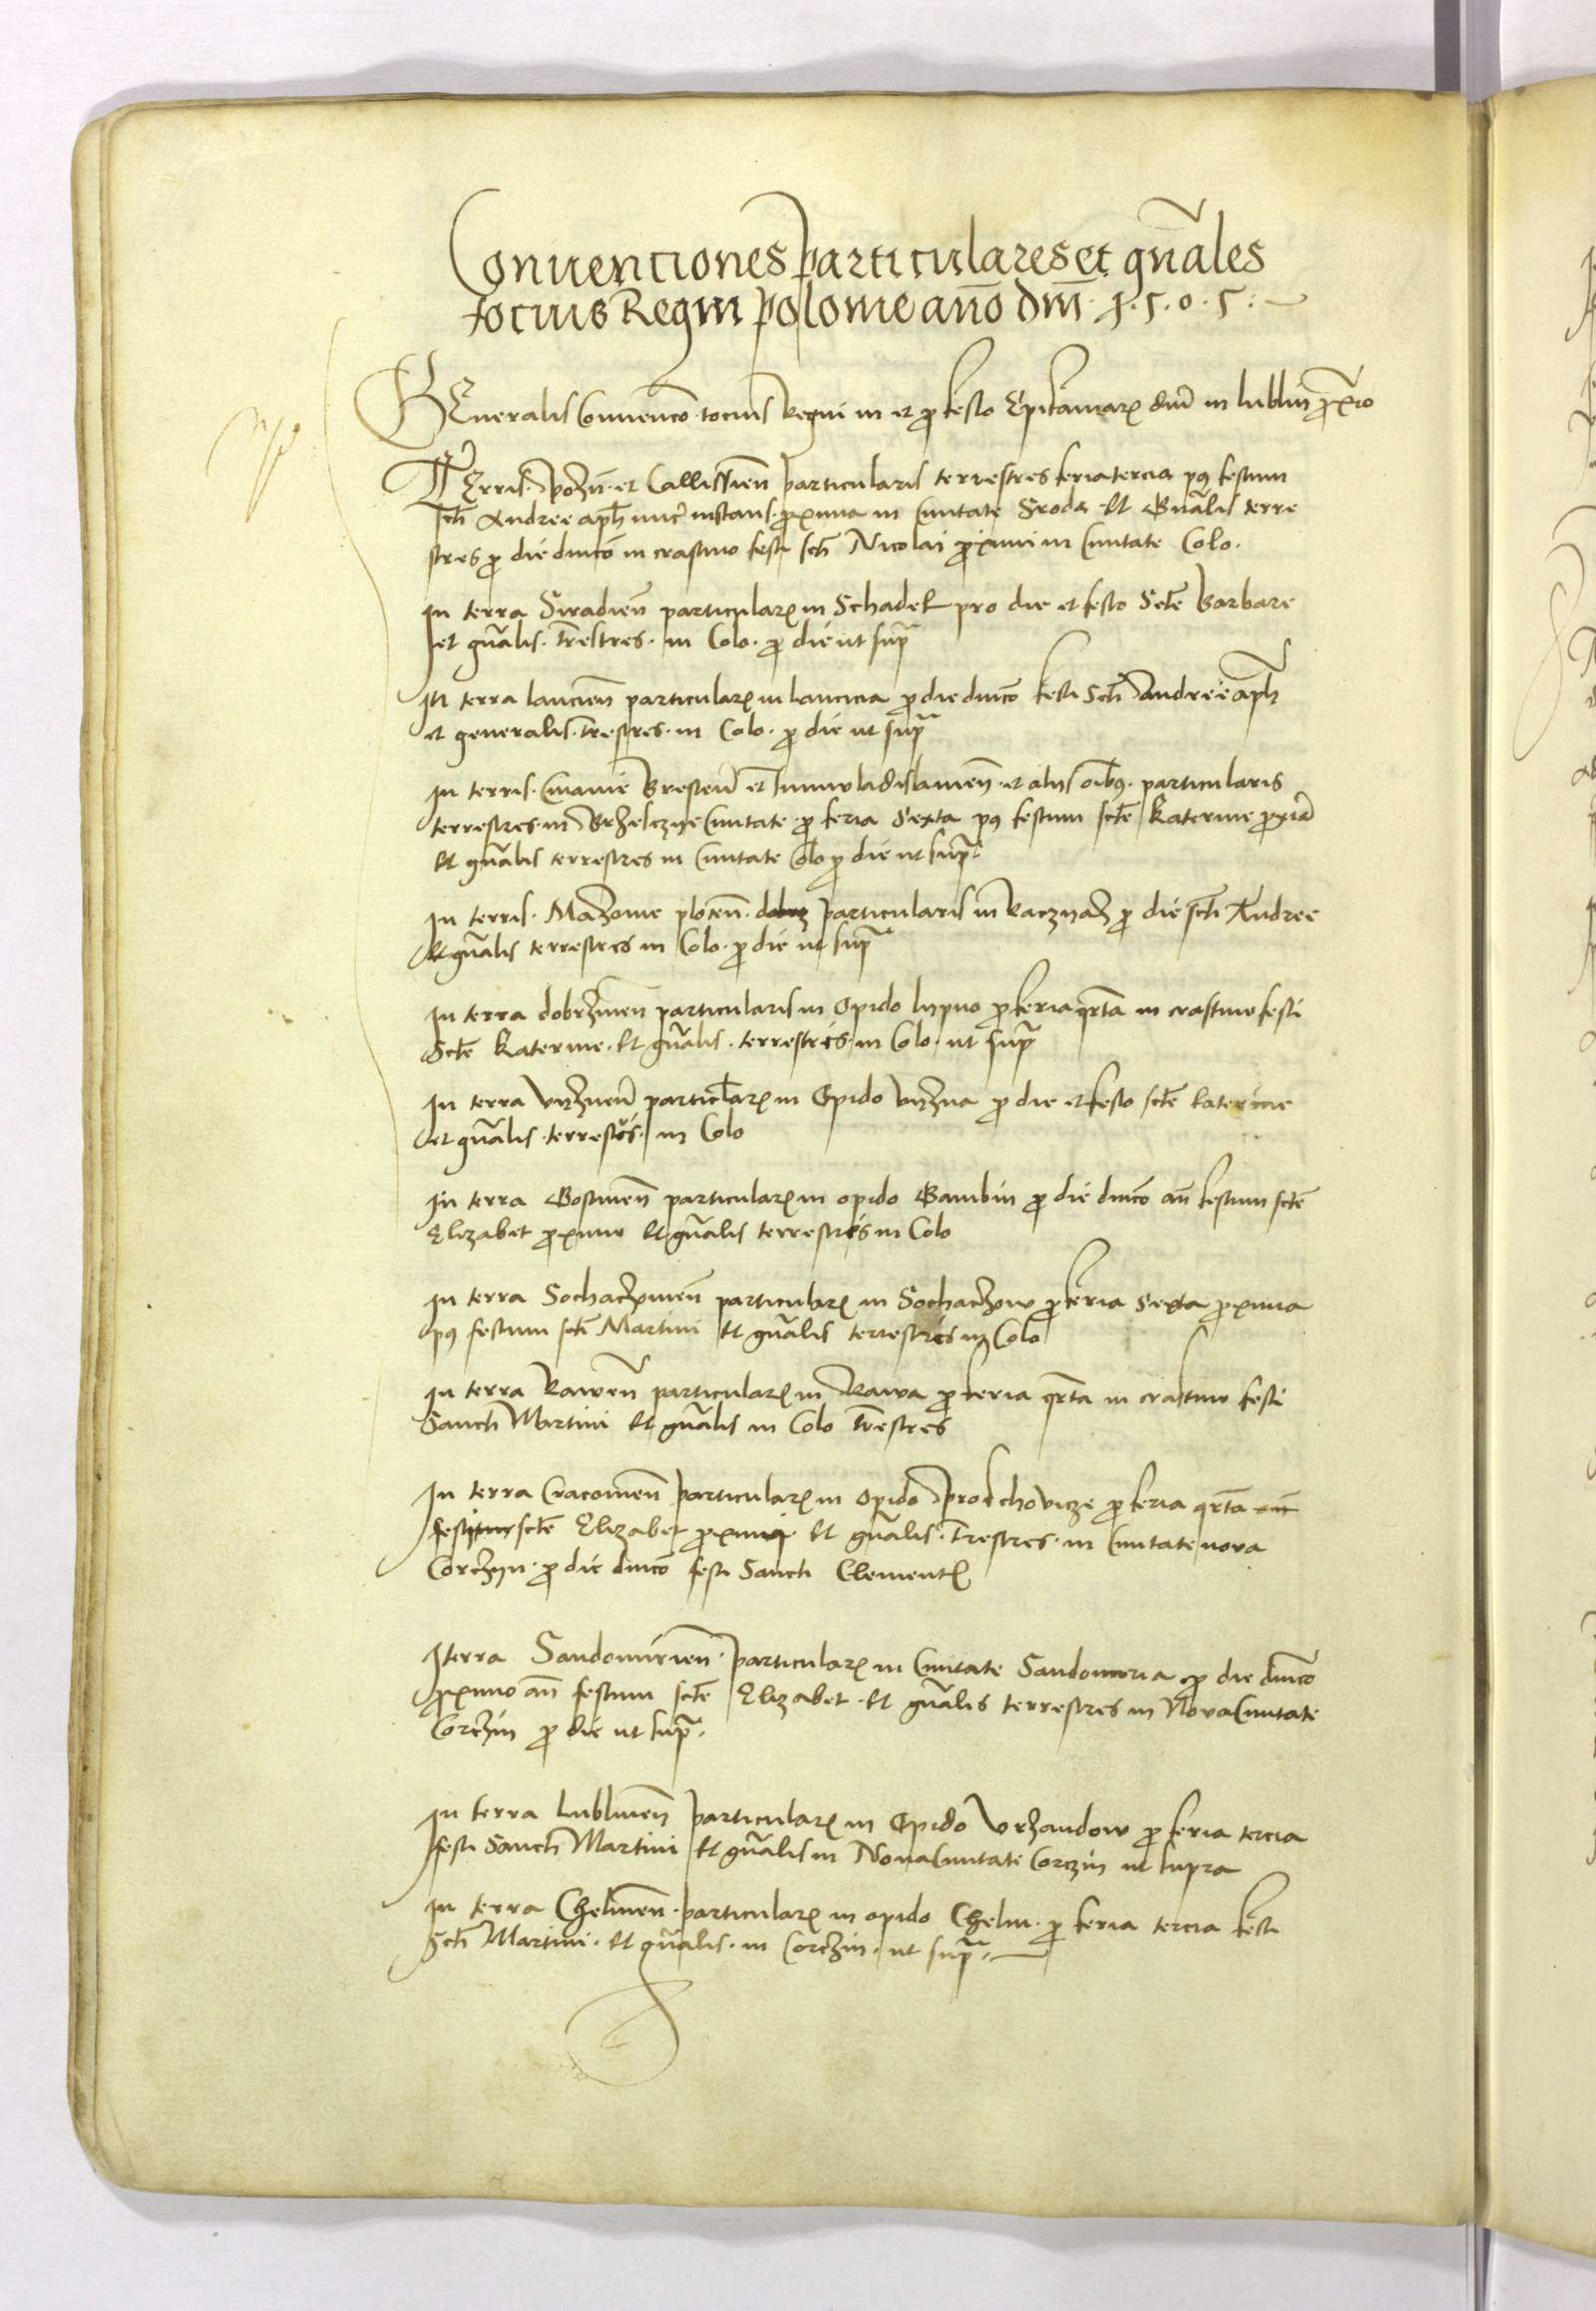 Conuenciones particulares et gn̄ales
tocius Regni polonie an̄o dn̄i · 1 · 5 · 0 · 5 ·
GEneralis Conuencō tocius Regni in et ꝓ festo Epiphaniarꝫ dn̄i in lublin ꝓxīo
TErris · pozn̄ · et Callissien̄ particularis terrestres feria tercia pꝰ festum
scti Andree apl̄i nūc instans · ꝓxima in Ciuitate Sroda · Et Gn̄alis terre
stres ꝓ die dn̄ico in crastino festi scti Nicolai ꝓximi in Ciuitate Colo ·
In terra Siradien̄ particularꝭ in Schadek pro die et festo Scte Barbare
et gn̄alis · tr̄estres · in Colo · ꝓ die ut supᵃ
In terra lancien̄ particularꝭ in lancicia ꝓ die dn̄ico festi Scti Andree apl̄i
et generalis · tr̄estres · in Colo · ꝓ die ut supᵃ
In terris · Cuiauie Bresten̄ et Iuniuladislauien̄ · et aliis oībꝰ · particularis
terrestres · in Ciuitate · ꝓ feria Sexta pꝰ festum scte Katerine ꝓxīa
Et gn̄alis terrestres in Ciuitate Colo ꝓ die ut supᵃ
In terris · Mazouie plocen̄ · particularis in Raczyasz ꝓ die scti Andree
Et gn̄alis terrestres in Colo · ꝓ die ut supᵃ
In terra dobrzinen̄ particularis in Opido lypno ꝓ feria qrta in crastino festi
Scte Katerine · Et gn̄alis · terrestris · in Colo · ut supᵃ
In terra Vyznen̄ particl̄arꝭ in Opido vyzna ꝓ die et festo scte katerine
et gn̄alis · terrestris · in Colo
In terra Gostinen̄ particularꝭ in opido Gambin ꝓ die dn̄ico an̄ festum scte
Elizabet ꝓximo Et gn̄alis terrestris in Colo
In terra Sochaczouien̄ particularꝭ in Sochaczow ꝓ feria Sexta ꝓxima
pꝰ festum scti Martini Et gn̄alis terrestris in Colo
In terra Rawen̄ particularꝭ in Rawa ꝓ feria qrta in crastino festi
Sancti Martini Et gn̄alis in Colo tr̄estres
In terra Cracouien̄ particularꝭ in Opido proschovicze ꝓ feria qrta
festi scte Elizabet ꝓximi · Et gn̄alis · tr̄estres · in Ciuitate nova
Corczyn · ꝓ die dn̄ico festi Sancti Clementꝭ
I terra Sandomirien̄ · particularꝭ in Ciuitate Sandomiria ꝓ die dn̄ico
ꝓximo an̄ festum scte Elizabet · Et gn̄alis terrestres in Nova Ciuitate
Corczin ꝓ die ut supᵃ ·
In terra lublinen̄ particularꝭ in Opido Vrzandow ꝓ feria tercia
festi Sancti Martini Et gn̄alis in Noua Ciuitate Corczin ut supra
In terra Chelmen̄ · particularꝭ in opido Chelm · ꝓ feria tercia festi
Scti Martini · Et gn̄alis · in Corczin · ut supᵃ ·